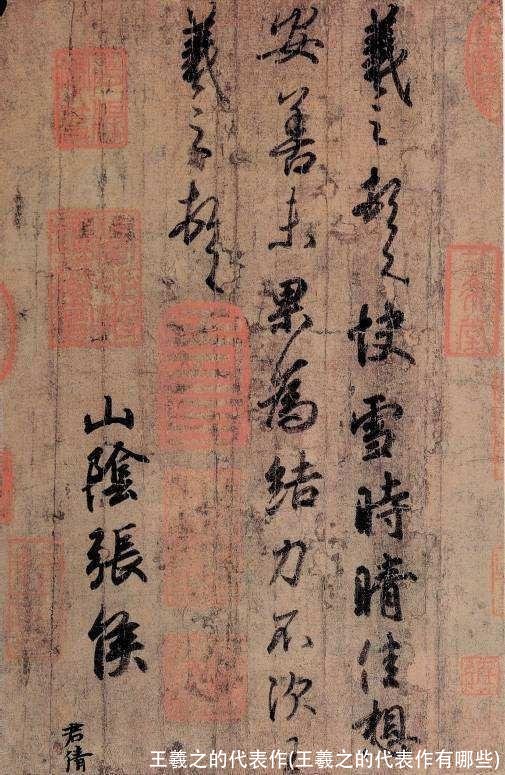 羲之頓首快雪時晴佳想
安善未果為結力不次王
羲之頓首
山陰張侯
君倩
王羲之的代表作(王羲之的代表作有哪些)